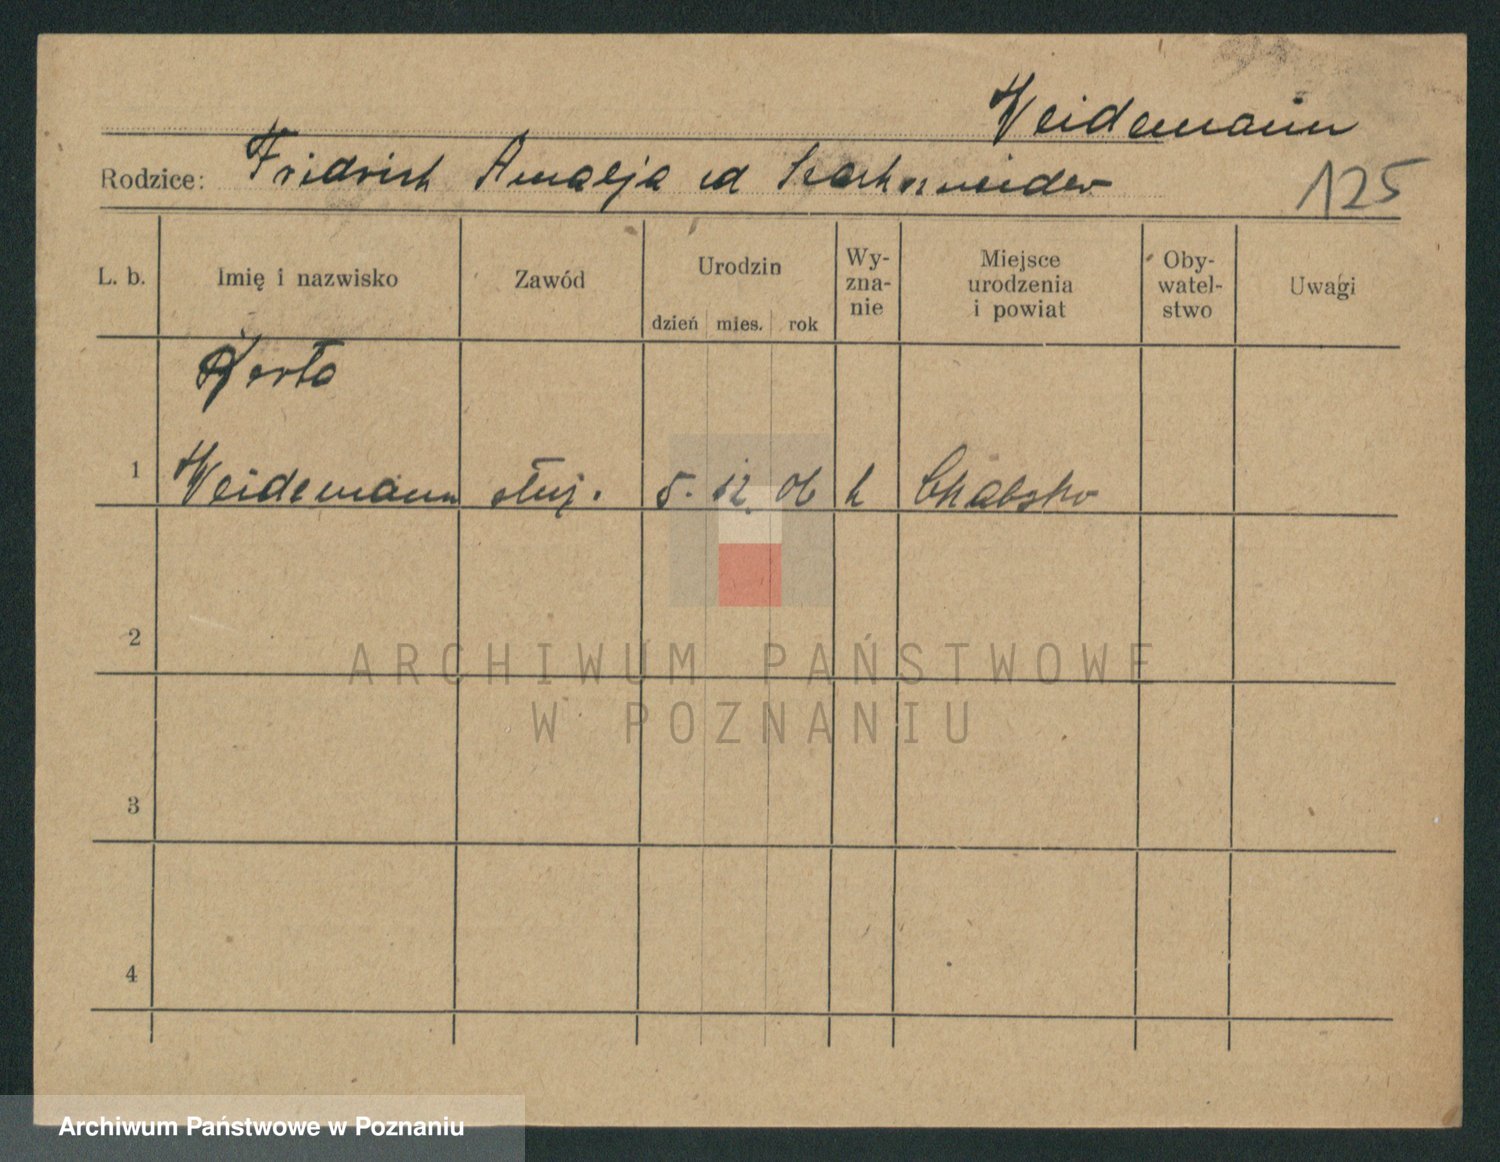 Weidemann
Rodzice: Fridrich Amalja
125
L. b. Imię i nazwisko Zawód Urodzin dzień mies. rok Wy-zna-nie Miejsce urodzenia i powiat Oby-watel-stwo Uwagi
1 Weidemann służ. 5. 12. 06 Chabsko
2
3
4
ARCHIWUM PAŃSTWOWE
W POZNANIU
Archiwum Państwowe w Poznaniu